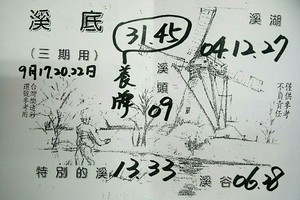 溪底
(三期用)
9月17.20.22日
31.45
養牌
溪頭
09
溪湖
04.12.27
僅供參考
不負責任
特別的溪
13.33
溪谷
06.28